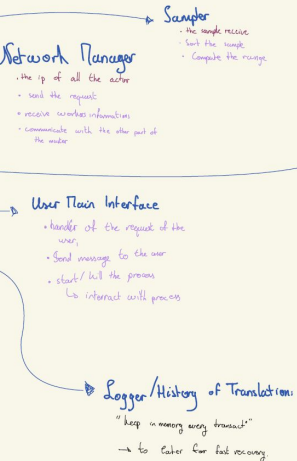 Sampler
• the sample receive
• Sort the sample
• Compute the range
Network Manager
• the ip of all the actor
• send the request
• receive workers information
• communicate with the other part of
the worker
User Main Interface
• handler of the request of the
user,
• Send message to the user
• start/kill the process
↳ interract with process
Logger/History of Translation:
"keep in memory every transact°"
→ to later for fast recovery.